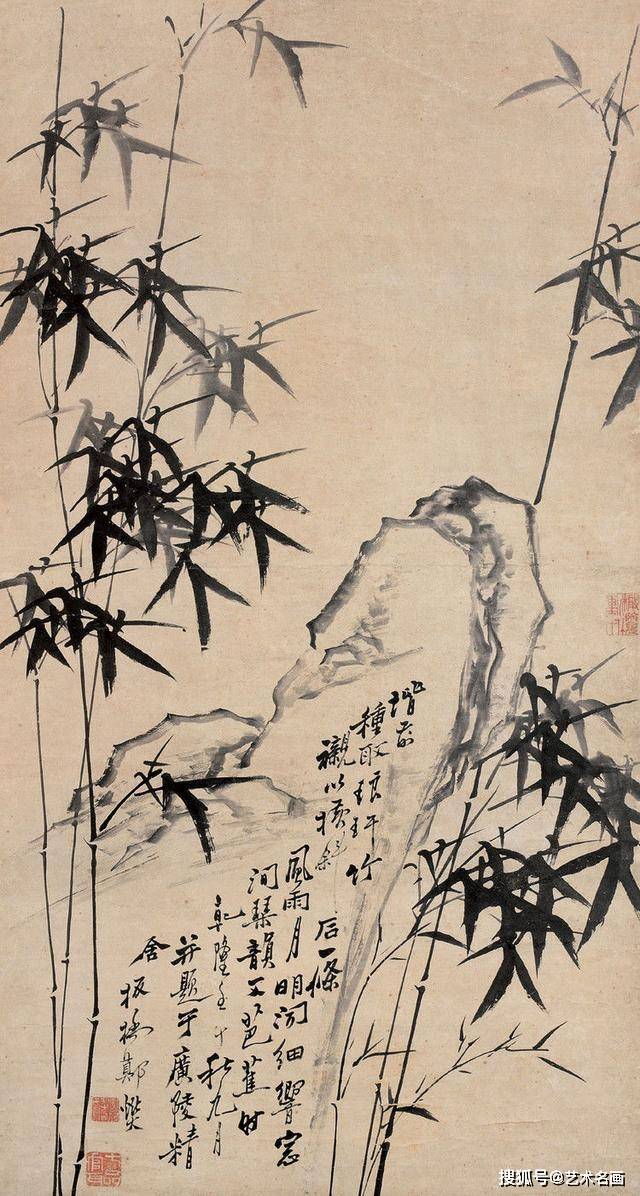 階前
種取琅玕竹
襯以横斜
石一條
風雨月明聞細響窓
間琴韻又芭蕉时
乾隆壬午秋九月
并題于廣陵精
舍 板橋鄭燮
搜狐号@艺术名画